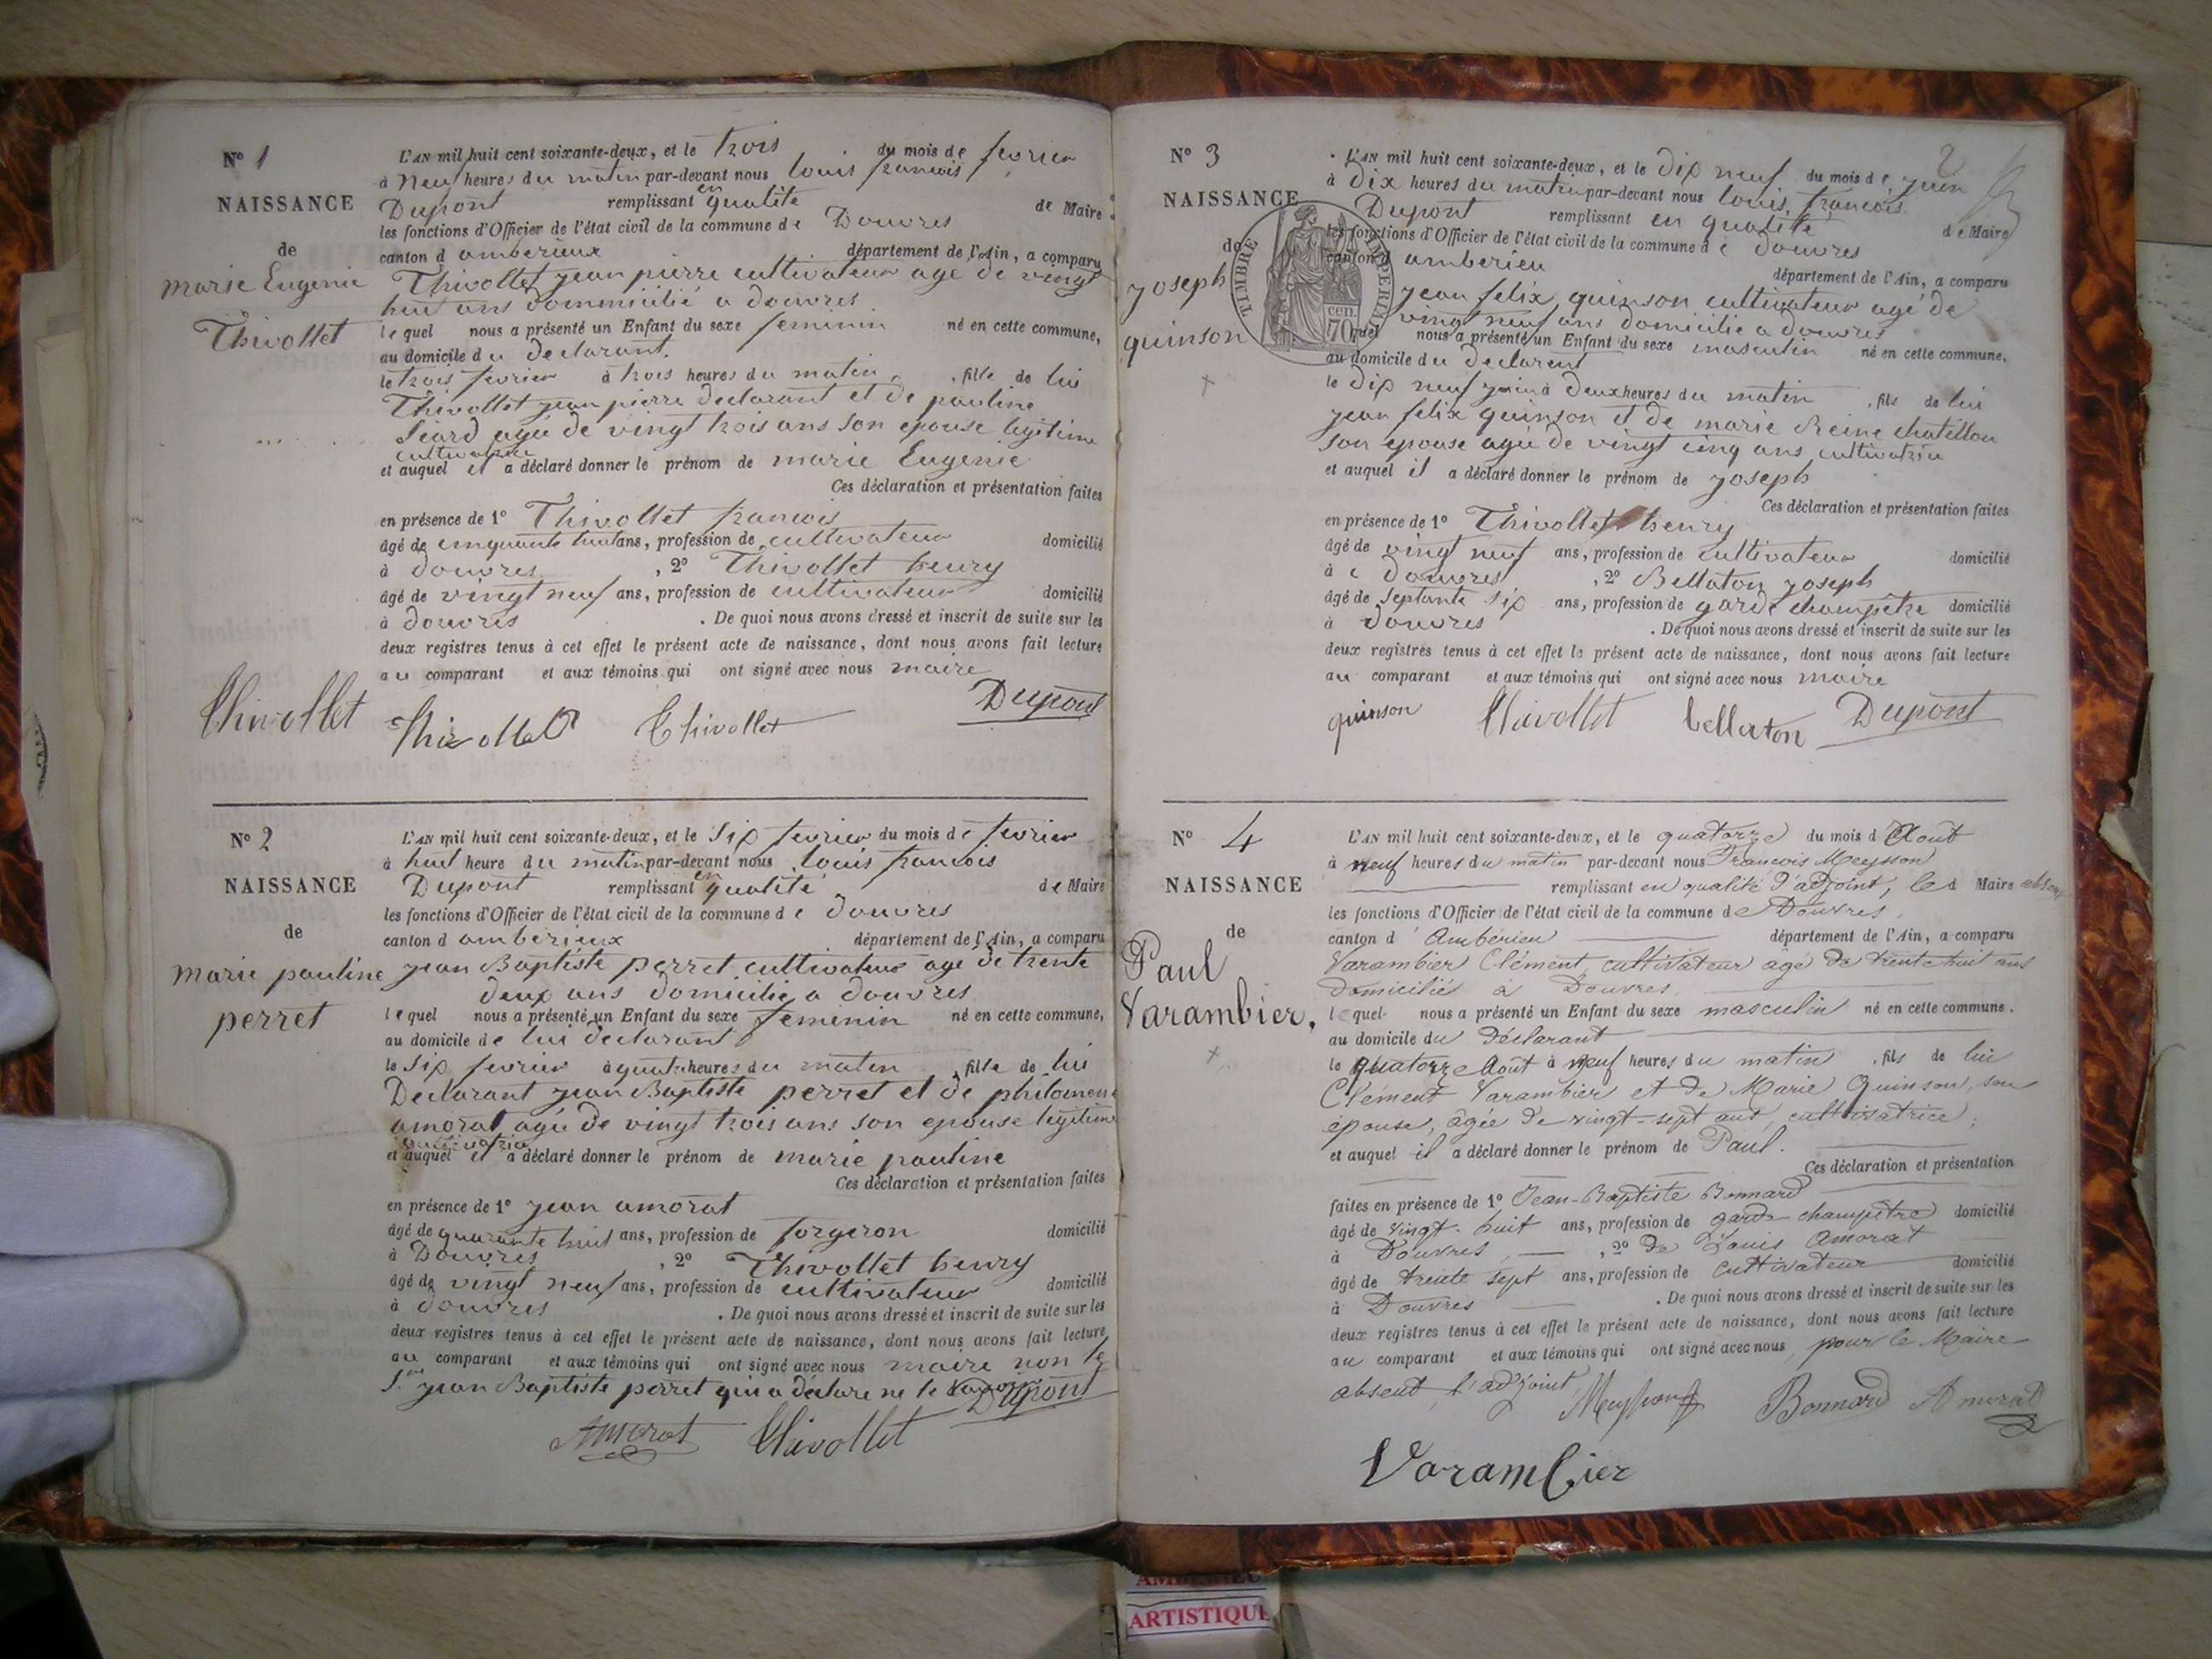 N° 1
NAISSANCE
de
marie Eugenie
Thivollet
L'AN mil huit cent soixante-deux, et le trois du mois de fevrier
à Neuf heures du matin par-devant nous louis francois
Dupont remplissant en qualité de Maire
les fonctions d'Officier de l'état civil de la commune de Douvres
canton d amberieux département de l'Ain, a comparu
Thivollet jean pierre cultivateur agé de vingt
huit ans dommicilié a douvres
le quel nous a présenté un Enfant du sexe feminin né en cette commune,
au domicile du declarant.
le trois fevrier à trois heures du matin, fille de lui
Thivollet jean pierre declarant et de pauline
Siard agée de vingt trois ans son epouse legitime
cultivatrice
et auquel il a déclaré donner le prénom de marie Eugenie
Ces déclaration et présentation faites
en présence de 1° Thivollet francois
âgé de cinquante huit ans, profession de cultivateur domicilié
à douvres, 2° Thivollet henry
âgé de vingt neuf ans, profession de cultivateur domicilié
à douvres. De quoi nous avons dressé et inscrit de suite sur les
deux registres tenus à cet effet le présent acte de naissance, dont nous avons fait lecture
au comparant et aux témoins qui ont signé avec nous maire
Thivollet Thivollet Thivollet Dupont
N° 2
NAISSANCE
de
marie pauline
perret
L'AN mil huit cent soixante-deux, et le Six fevrier du mois de fevrier
à huit heure du matin par-devant nous louis francois
Dupont remplissant en qualité de Maire
les fonctions d'Officier de l'état civil de la commune de douvres
canton d amberieux département de l'Ain, a comparu
jean Baptiste perret cultivateur agé de trente
deux ans domicilié a douvres
le quel nous a présenté un Enfant du sexe femenin né en cette commune,
au domicile de lui declarant
le Six fevrier à quatre heures du matin, fille de lui
Declarant jean Baptiste perret et de philomene
amorat agée de vingt trois ans son epouse legitime
cultivatrice
et auquel il a déclaré donner le prénom de marie pauline
Ces déclaration et présentation faites
en présence de 1° jean amorat
âgé de quarante huit ans, profession de forgeron domicilié
à Douvres, 2° Thivollet henry
âgé de vingt neuf ans, profession de cultivateur domicilié
à douvres. De quoi nous avons dressé et inscrit de suite sur les
deux registres tenus à cet effet le présent acte de naissance, dont nous avons fait lecture
au comparant et aux témoins qui ont signé avec nous maire non le
S. jean Baptiste perret qui a declare ne le savoir Dupont
Amorat Thivollet
2
N° 3
NAISSANCE
de
joseph
quinson
TIMBRE IMPERIAL
70 cen.
L'AN mil huit cent soixante-deux, et le dix neuf du mois de juin
à dix heures du matin par-devant nous louis francois
Dupont remplissant en qualité de Maire
les fonctions d'Officier de l'état civil de la commune de douvres
canton d amberieu département de l'Ain, a comparu
jean felix quinson cultivateur agé de
vingt neuf ans domicilié a douvres
quel nous a présenté un Enfant du sexe masculin né en cette commune,
au domicile du declarent
le dix neuf juin à deux heures du matin, fils de lui
jean felix quinson et de marie Reine chatellon
son epouse agée de vingt cinq ans cultivatrice
et auquel il a déclaré donner le prénom de joseph
Ces déclaration et présentation faites
en présence de 1° Thivollet henry
âgé de vingt neuf ans, profession de cultivateur domicilié
à douvres, 2° Bellaton joseph
âgé de Septante Six ans, profession de garde champêtre domicilié
à douvres. De quoi nous avons dressé et inscrit de suite sur les
deux registres tenus à cet effet le présent acte de naissance, dont nous avons fait lecture
au comparant et aux témoins qui ont signé avec nous maire
quinson Thivollet bellaton Dupont
N° 4
NAISSANCE
de
Paul
Varambier,
L'AN mil huit cent soixante-deux, et le quatorze du mois d Août
à neuf heures du matin par-devant nous Francois Meysson
remplissant en qualité d'adjoint, le d Maire absent
les fonctions d'Officier de l'état civil de la commune de Douvres,
canton d'Ambérieu département de l'Ain, a comparu
Varambier Clément, cultivateur agé de trente huit ans
domicilié à Douvres.
le quel nous a présenté un Enfant du sexe masculin né en cette commune,
au domicile du Déclarant
le quatorze Août à neuf heures du matin, fils de lui
Clément Varambier et de Marie Quinson, son
épouse, âgée de vingt-sept ans, cultivatrice,
et auquel il a déclaré donner le prénom de Paul.
Ces déclaration et présentation
faites en présence de 1° Jean-Baptiste Bonnard
âgé de vingt-huit ans, profession de garde-champêtre domicilié
à Douvres, 2° de Louis Amorat
âgé de trente sept ans, profession de cultivateur domicilié
à Douvres. De quoi nous avons dressé et inscrit de suite sur les
deux registres tenus à cet effet le présent acte de naissance, dont nous avons fait lecture
au comparant et aux témoins qui ont signé avec nous, pour le Maire
absent, l'adjoint, Meysson Bonnard Amorat
Varambier
ARTISTIQUE